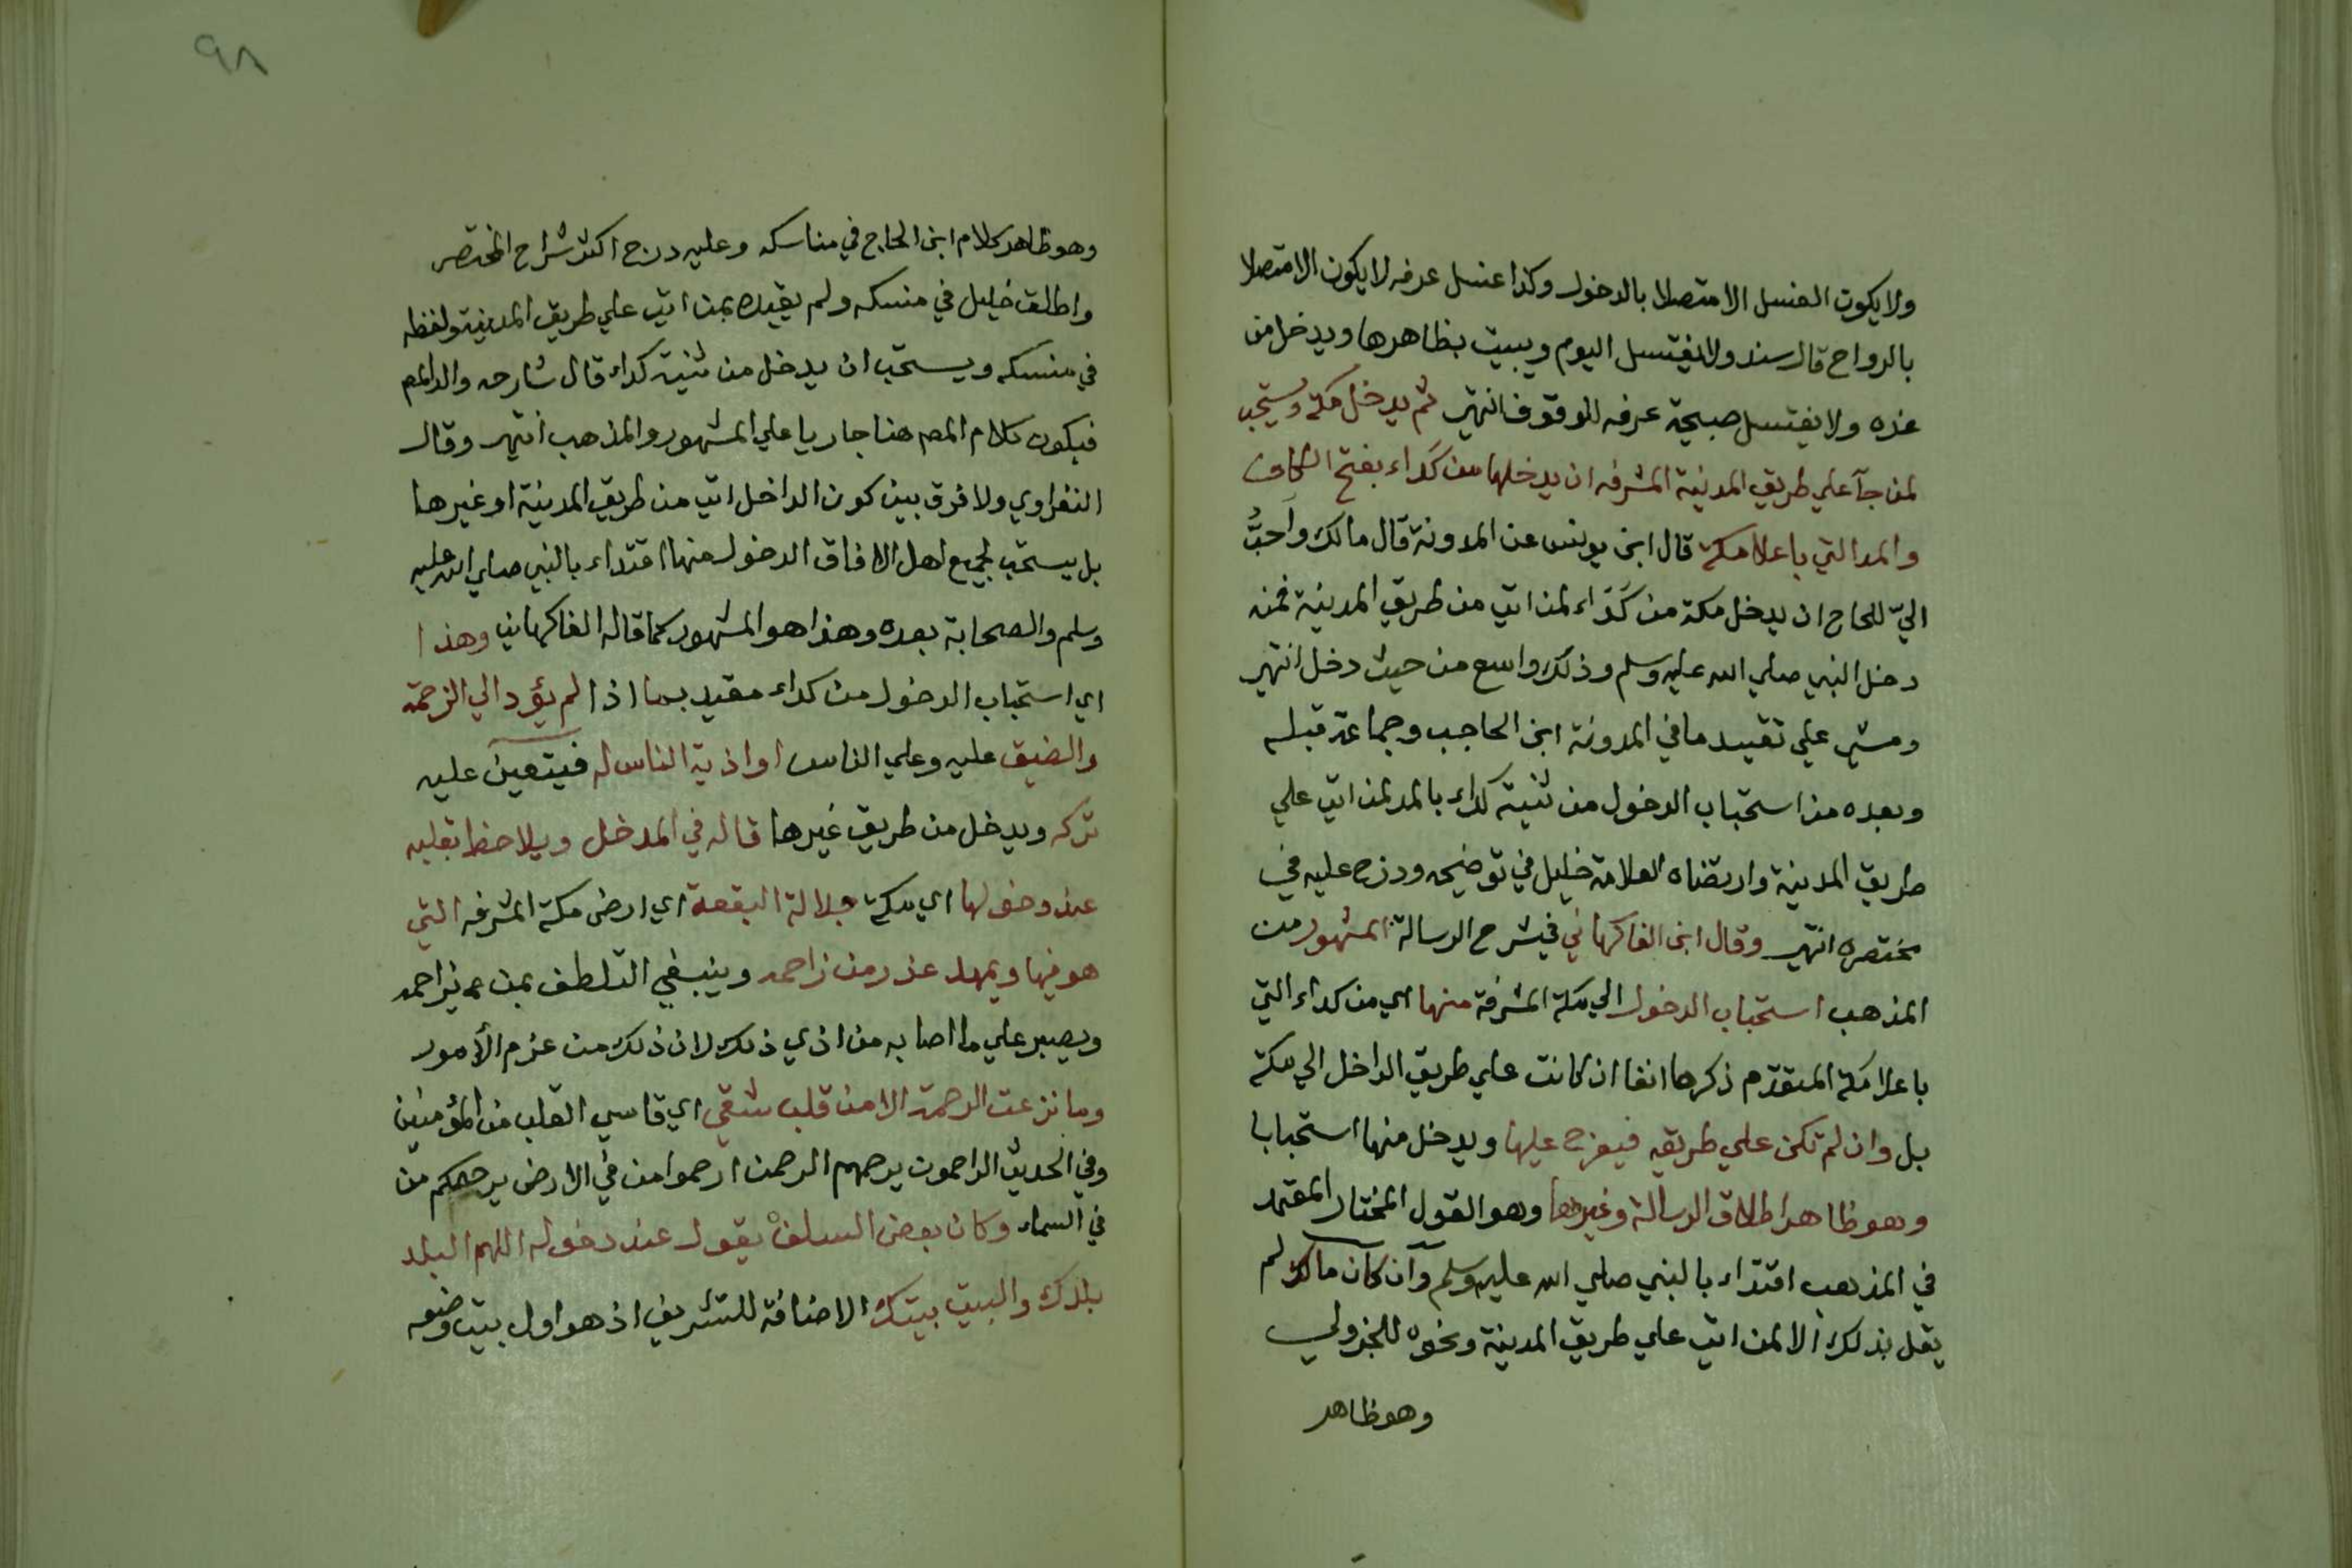 ولا يكون الغسل الا متصلا بالدخول وكذا غسل عرفه لا يكون الا متصلا
بالرواح قال سند ولا يغتسل اليوم ويبيت بظاهرها ويدخل من
غده ولا يغتسل صبيحة عرفه للوقوف انتهى ثم يدخل مكة ويستحب
لمن جآ علي طريق المدينة المشرفه ان يدخلها من كداء بفتح الكاف
والمد التي باعلا مكة قال ابن يونس عن المدونة قال مالك واَحبُّ
اليّ للحاج ان يدخل مكة من كَدَاء لمن اتي من طريق المدينة فمنه
دخل النبي صلي الله عليه وسلم وذلك واسع من حيث دخل انتهى
ومشي علي تقييد ما في المدونة ابن الحاجب وجماعة قبله
وبعده من استحباب الدخول من ثنية كداء بالمد لمن اتي علي
طريق المدينة وارتضاه العلامة خليل في توضيحه ودرج عليه في
مختصره انتهى وقال ابن الفاكهاني في شرح الرسالة المشهور من
المذهب استحباب الدخول الي مكة المشرفة منها اي من كداء التي
باعلا مكة المتقدم ذكرها انفا ان كانت علي طريق الداخل الي مكة
بل وان لم تكن علي طريقه فيعرج عليها ويدخل منها استحبابا
وهو ظاهر اطلاق الرسالة وغيرها وهو القول المختار المعتمد
في المذهب اقتداء بالنبي صلي الله عليه وسلم وان كان مالك لم
يقل بذلك الا لمن اتي علي طريق المدينة ونحوه للجزولي
وهو ظاهر
٩٨
وهو ظاهر كلام ابن الحاج في مناسكه وعليه درج اكثر شراح المختصر
واطلق خليل في منسكه ولم يقيده بمن اتي علي طريق المدينة ولفظه
في منسكه ويستحب ان يدخل من ثنية كداء قال شارحه والد المص
فيكون كلام المص هنا جاريا علي المشهور والمذهب انتهى وقال
النفراوي ولا فرق بين كون الداخل اتي من طريق المدينة او غيرها
بل يستحب لجميع اهل الافاق الدخول منها اقتداء بالنبي صلي الله عليه
وسلم والصحابة بعده وهذا هو المشهور كما قاله الفاكهاني وهذا
اي استحباب الدخول من كداء مقيد بما اذا لم يؤد الي الزحمة
والضيق عليه وعلي الناس او اذية الناس له فيتعين عليه
تركه ويدخل من طريق غيرها قاله في المدخل ويلاحظ بقلبه
عند دخولها اي مكة جلالة البقعة اي ارض مكة المشرفه التي
هو فيها ويمهد عذر من زاحمه وينبغي التلطف بمن يزاحمه
ويصبر علي ما اصابه من اذي ذلك لان ذلك من عزم الأمور
وما نزعت الرحمة الا من قلب شقي اي قاسي القلب من المؤمنين
وفي الحديث الراحمون يرحمهم الرحمن ارحموا من في الارض يرحمكم من
في السماء وكان بعض السلف يقول عند دخوله اللهم البلد
بلدك والبيت بيتك الاضافة للتشريف اذ هو اول بيت وضع